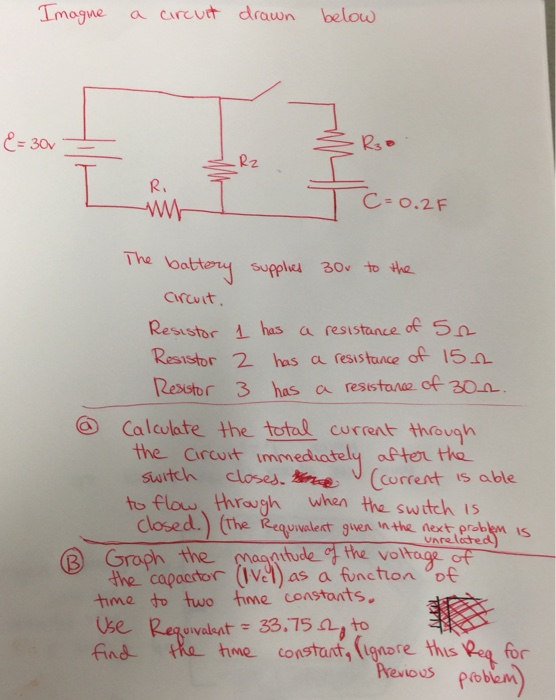 Imagine a circuit drawn below
ℰ = 30v
R2
R3
R1
C = 0.2F
The battery supplies 30v to the
circuit.
Resistor 1 has a resistance of 5Ω
Resistor 2 has a resistance of 15Ω
Resistor 3 has a resistance of 30Ω.
ⓐ Calculate the total current through
the circuit immediately after the
switch closes. (current is able
to flow through when the switch is
closed.) (The Requivalent given in the next problem is
unrelated)
Ⓑ Graph the magnitude of the voltage of
the capacitor (|Vc|) as a function of
time to two time constants.
Use Requivalent = 33.75 Ω, to
find the time constant, (ignore this Req for
Previous problem)